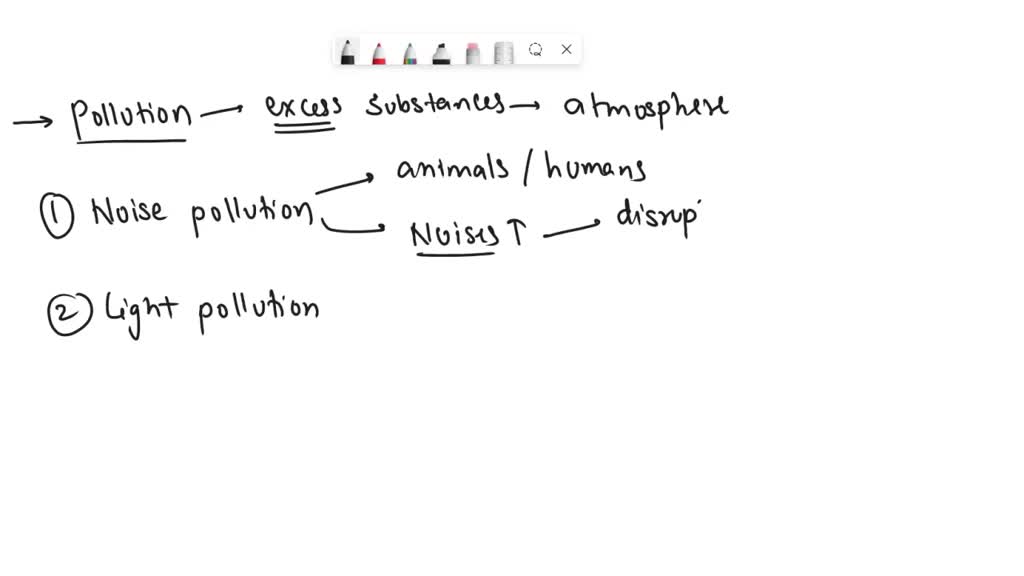 → Pollution — excess substances → atmosphere
animals / humans
① Noise pollution
Noises ↑ — disrup
② Light pollution